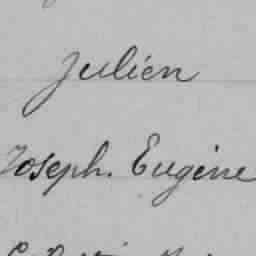 Julien
Joseph. Eugène